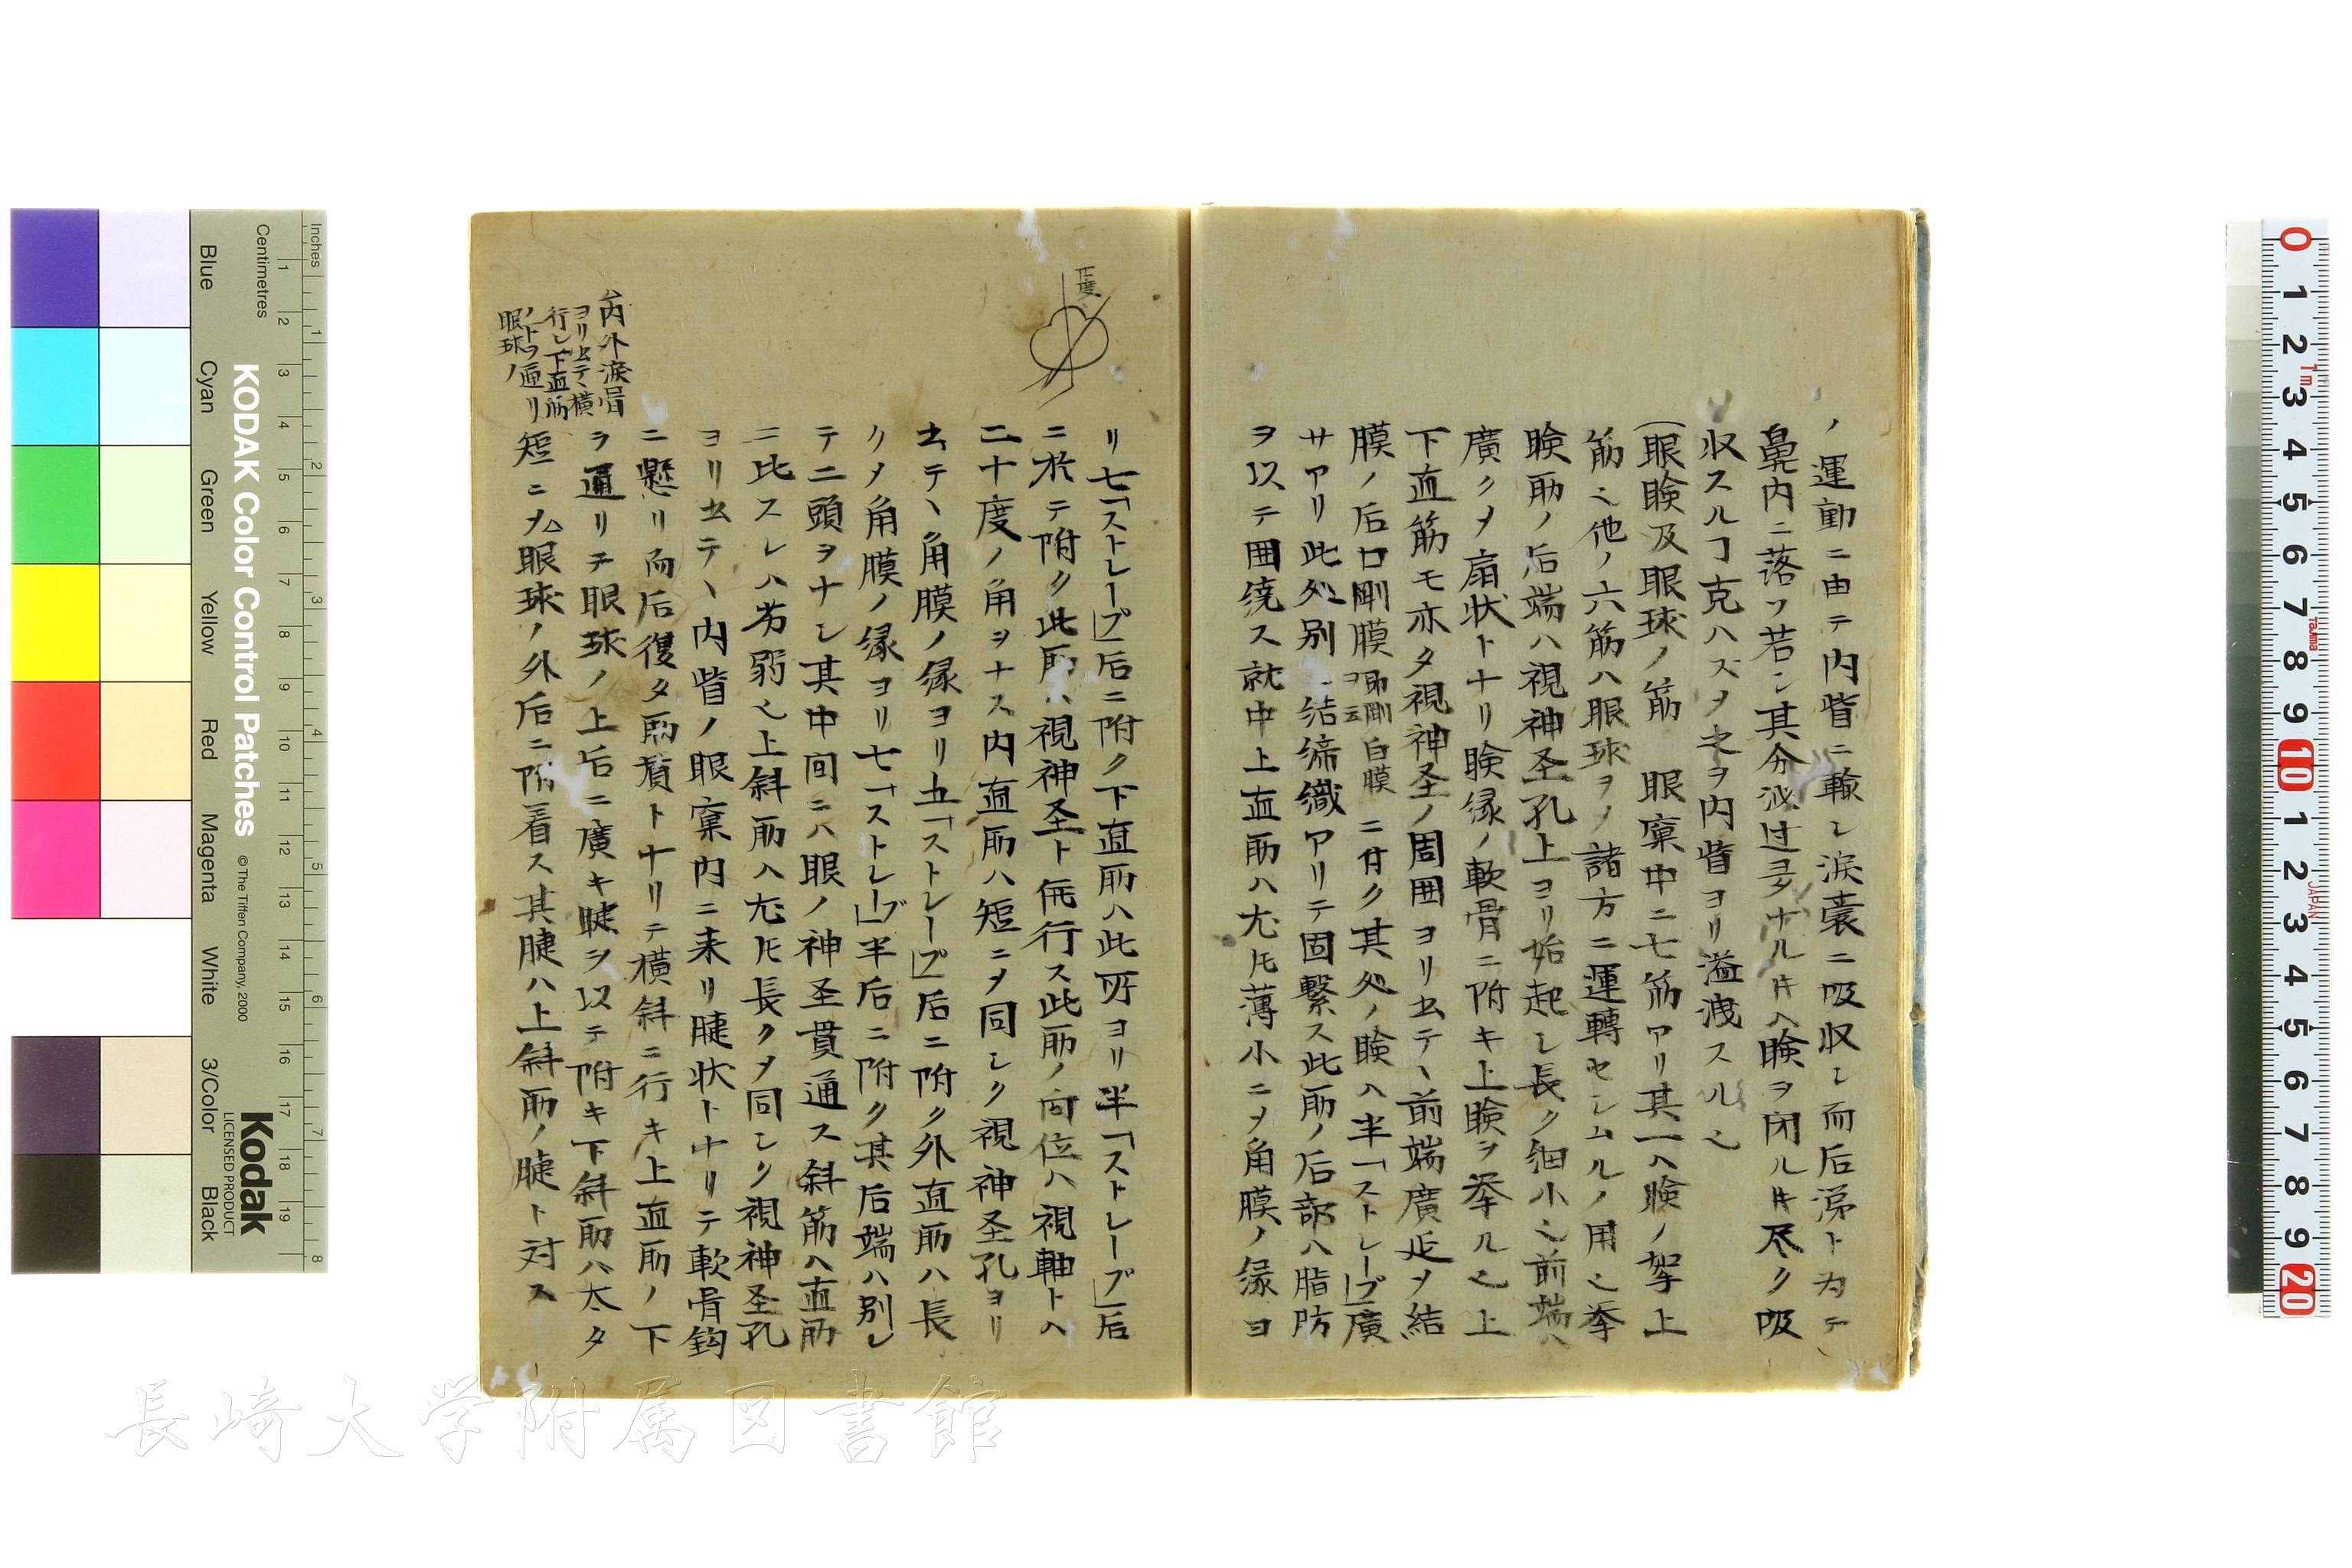 ノ運動ニ由テ内眥ニ輸シ涙嚢ニ吸収シ而后涕ト為テ
鼻内ニ落ツ若シ其分泌过多ナル片ハ瞼ヲ閉ル片尽ク吸
収スルヿ克ハズヲ之ヲ内眥ヨリ溢洩スル也
(眼瞼及眼球ノ筋 眼窠中ニ七筋アリ其一ハ瞼ノ挙上
筋也他ノ六筋ハ眼球ヲノ諸方ニ運轉セシムルノ用也挙
瞼筋ノ后端ハ視神圣孔上ヨリ始起シ長ク細小也前端ハ
廣クメ扇状トナリ瞼縁ノ軟骨ニ附キ上瞼ヲ挙ル也上
下直筋モ亦タ視神圣ノ周囲ヨリ出テ、前端廣延メ結
膜ノ后口剛膜 即剛白膜ヲ云 ニ付ク其処ノ瞼ハ半「ストレープ」廣
サアリ此処別 結締織アリテ固繋ス此筋ノ后部ハ脂肪
ヲ以テ囲繞ス就中上直筋ハ尤モ薄小ニメ角膜ノ縁ヨ
リ七「ストレープ」后ニ附ク下直筋ハ此所ヨリ半「ストレープ」后
ニ於テ附ク此筋ハ視神圣ト併行ス此筋ノ向位ハ視軸トハ
二十度ノ角ヲナス内直筋ハ短ニメ同シク視神圣孔ヨリ
出テ、角膜ノ縁ヨリ五「ストレープ」后ニ附ク外直筋ハ長
クメ角膜ノ縁ヨリ七「ストレープ」半后ニ附ク其后端ハ別レ
テ二頭ヲナシ其中間ニハ眼ノ神圣貫通ス斜筋ハ直筋
ニ比スレハ劣弱也上斜筋ハ尤モ長クメ同シク視神圣孔
ヨリ出テ、内眥ノ眼窠内ニ来リ腱状トナリテ軟骨鈎
ニ懸リ而后復タ筋質トナリテ横斜ニ行キ上直筋ノ下
ヲ通リテ眼球ノ上后ニ廣キ腱ヲ以テ附キ下斜筋ハ太タ
短ニメ△眼球ノ外后ニ附着ス其腱ハ上斜筋ノ腱ト対ス
△内外涙骨
ヨリ出テ、横
行シ下直筋
ノ下ヲ通リ
眼球ノ
長崎大学附属図書館
Inches
Centimetres
KODAK Color Control Patches
© The Tiffen Company, 2000
Kodak
LICENSED PRODUCT
Blue Cyan Green Yellow Red Magenta White 3/Color Black
1 2 3 4 5 6 7 8 9 10 11 12 13 14 15 16 17 18 19
1 2 3 4 5 6 7 8
0 1 2 3 4 5 6 7 8 9 10 1 2 3 4 5 6 7 8 9 20
Tajima
JAPAN